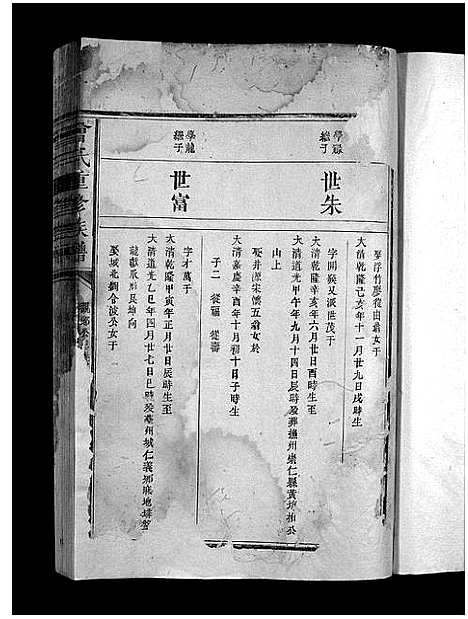 娶浮竹廖從由翁女于
大清乾隆己亥年十一月廿九日戌時生
學
繼子
世朱
字開候又派世茂于
大清乾隆辛亥年六月廿日酉時生至
大清道光甲午年九月十四日辰時歿葬撫州崇仁縣黃坤栢公
山上
娶井源宋懷五翁女於
大清嘉慶辛酉年十月初十日子時生
子二 從福 從壽
學龍
繼子
世富
字才萬于
大清乾隆甲寅年正月廿日辰時生至
大清道光乙巳年四月廿七日巳時歿葬州城仁義鄉
龍獻艮坤向
娶城北劉令波公女于
氏重修族譜